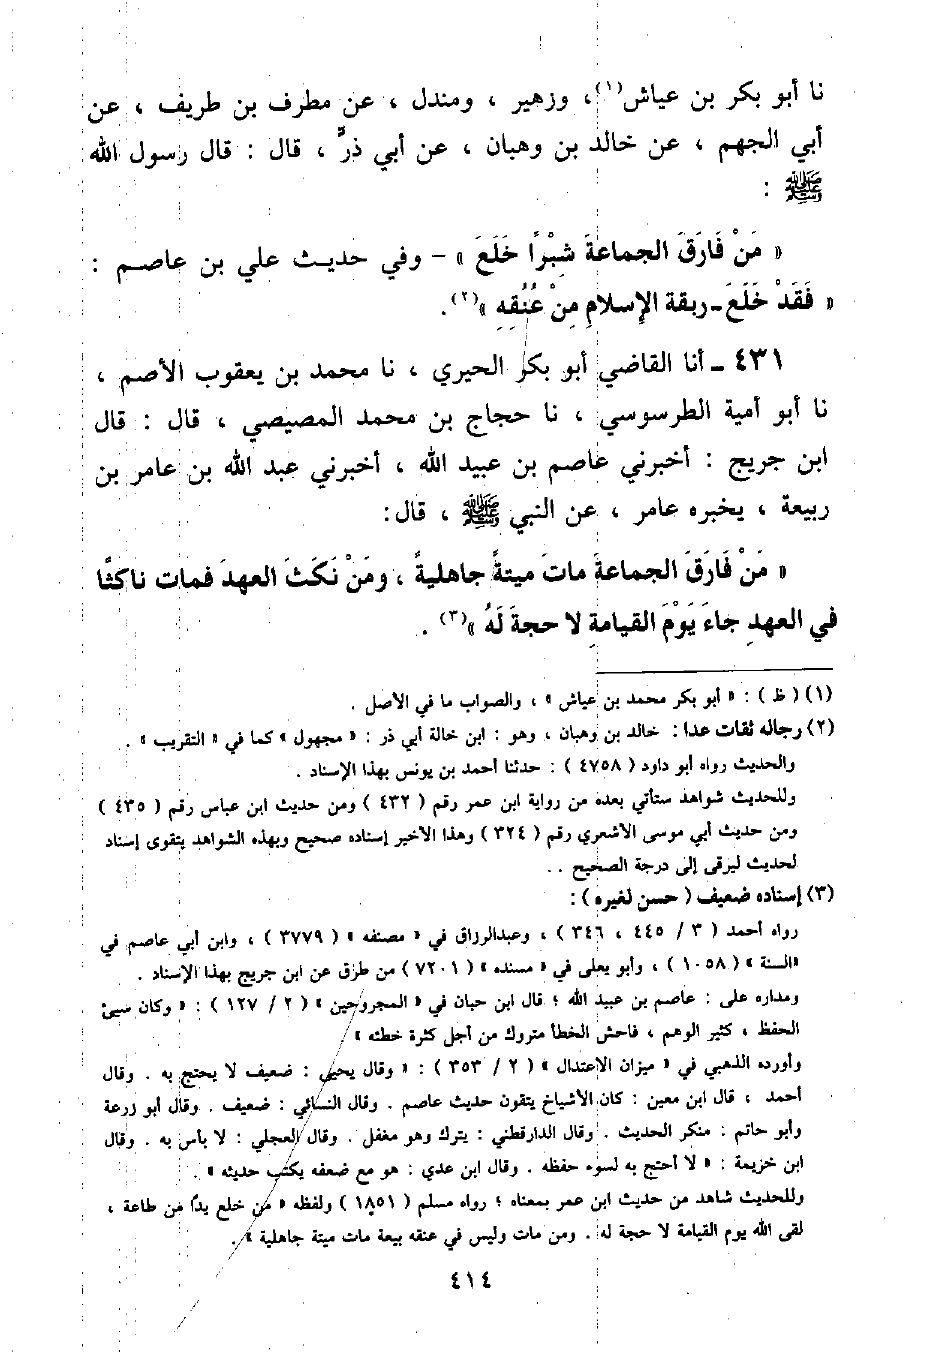 نا أبو بكر بن عياش(١)، وزهير ، ومندل ، عن مطرف بن طريف ، عن
أبي الجهم ، عن خالد بن وهبان ، عن أبي ذرٍّ ، قال : قال رسول الله
ﷺ :
« مَنْ فَارَقَ الجماعةَ شبْرًا خَلَعَ » - وفي حديث علي بن عاصم :
« فَقَدْ خَلَعَ - ربقة الإسلامِ مِنْ عُنُقِهِ »(٢).
٤٣١ - أنا القاضي أبو بكر الحيري ، نا محمد بن يعقوب الأصم ،
نا أبو أمية الطرسوسي ، نا حجاج بن محمد المصيصي ، قال : قال
ابن جريج : أخبرني عاصم بن عبيد الله ، أخبرني عبد الله بن عامر بن
ربيعة ، يخبره عامر ، عن النبي ﷺ ، قال:
« مَنْ فَارَقَ الجماعةَ ماتَ ميتةً جاهليةً ، ومَنْ نَكَثَ العهدَ فمات ناكثًا
في العهدِ جاءَ يَوْمَ القيامةِ لا حجةَ لَهُ »(٣) .
(١) ( ظ ) : « أبو بكر محمد بن عياش » ، والصواب ما في الأصل .
(٢) رجاله ثقات عدا : خالد بن وهبان ، وهو : ابن خالة أبي ذر : « مجهول » كما في « التقريب » .
والحديث رواه أبو داود ( ٤٧٥٨ ) : حدثنا أحمد بن يونس بهذا الإسناد .
وللحديث شواهد ستأتي بعده من رواية ابن عمر رقم ( ٤٣٢ ) ومن حديث ابن عباس رقم ( ٤٣٥ )
ومن حديث أبي موسى الأشعري رقم ( ٣٢٤ ) وهذا الأخير إسناده صحيح وبهذه الشواهد يتقوى إسناد
لحديث ليرقى إلى درجة الصحيح . .
(٣) إسناده ضعيف ( حسن لغيره ) :
رواه أحمد ( ٣ / ٤٤٥ ، ٣٤٦ ) ، وعبدالرزاق في « مصنفه » ( ٣٧٧٩ ) ، وابن أبي عاصم في
«السنة » ( ١٠٥٨ ) ، وأبو يعلى في « مسنده » ( ٧٢٠١ ) من طرق عن ابن جريج بهذا الإسناد .
ومداره على : عاصم بن عبيد الله ؛ قال ابن حبان في « المجروحين » ( ٢ / ١٢٧ ) : « وكان سيئ
الحفظ ، كثير الوهم ، فاحش الخطأ متروك من أجل كثرة خطئه »
وأورده الذهبي في « ميزان الاعتدال » ( ٢ / ٣٥٣ ) : « وقال يحيى : ضعيف لا يحتج به . وقال
أحمد ، قال ابن معين : كان الأشياخ يتقون حديث عاصم . وقال النسائي : ضعيف . وقال أبو زرعة
وأبو حاتم : منكر الحديث . وقال الدارقطني : يترك وهو مغفل . وقال العجلي : لا بأس به . وقال
ابن خزيمة : « لا أحتج به لسوء حفظه . وقال ابن عدي : هو مع ضعفه يكتب حديثه » .
وللحديث شاهد من حديث ابن عمر بمعناه ؛ رواه مسلم ( ١٨٥١ ) ولفظه « من خلع يدًا من طاعة ،
لقى الله يوم القيامة لا حجة له . ومن مات وليس في عنقه بيعة مات ميتة جاهلية » .
٤١٤